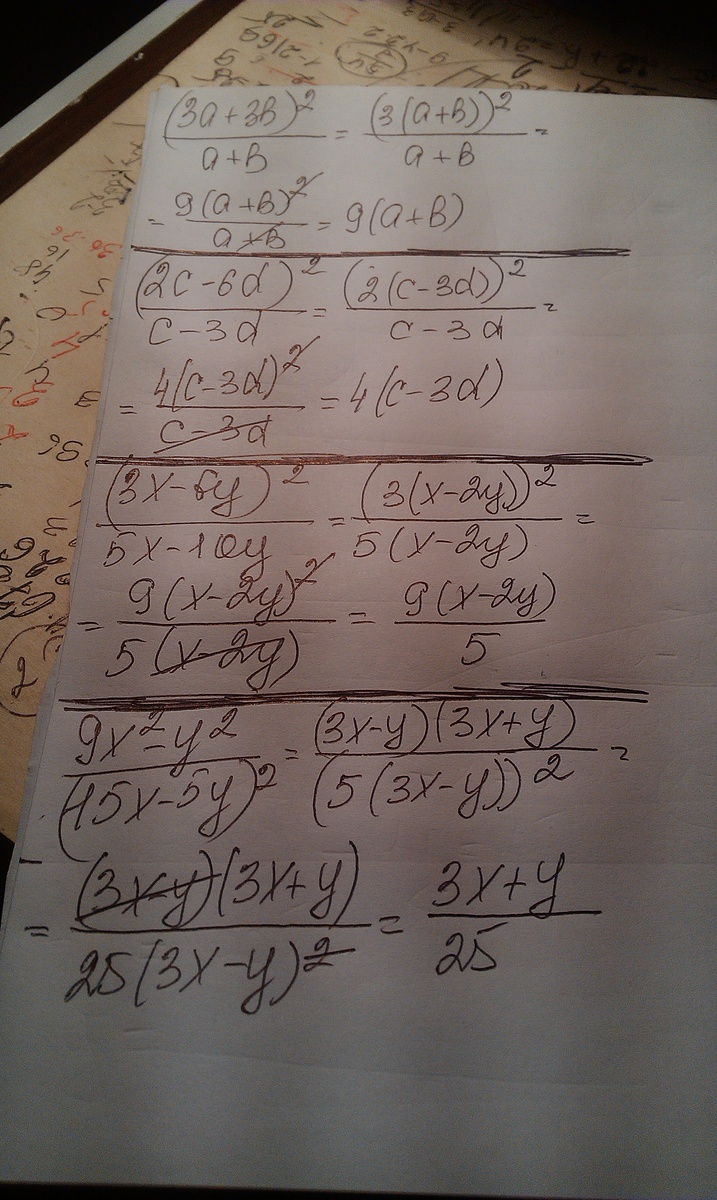 (3a+3b)²/(a+b) = (3(a+b))²/(a+b) =
= 9(a+b)²/(a+b) = 9(a+b)
(2c-6d)²/(c-3d) = (2(c-3d))²/(c-3d) =
= 4(c-3d)²/(c-3d) = 4(c-3d)
(3x-6y)²/(5x-10y) = (3(x-2y))²/(5(x-2y)) =
= 9(x-2y)²/(5(x-2y)) = 9(x-2y)/5
(9x²-y²)/(15x-5y)² = (3x-y)(3x+y)/(5(3x-y))² =
= (3x-y)(3x+y)/(25(3x-y)²) = (3x+y)/25